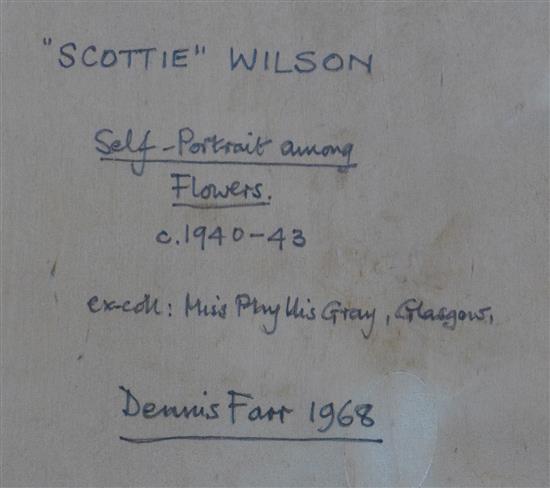 "SCOTTIE" WILSON
Self-Portrait among
Flowers.
c.1940-43
ex-coll: Miss Phyllis Gray, Glasgow.
Dennis Farr 1968